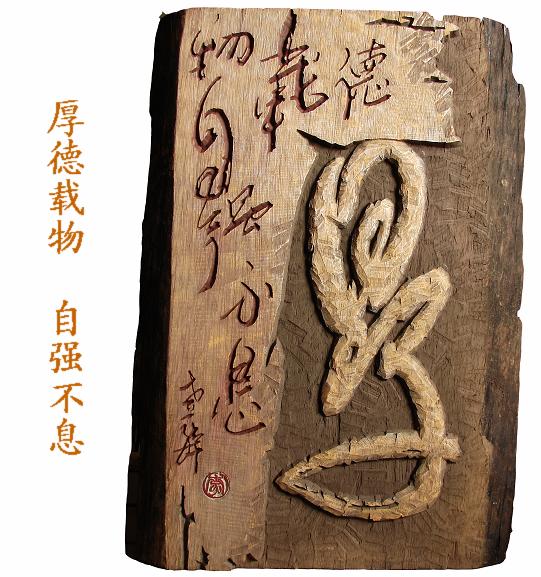 厚德载物 自强不息
厚
德
載
物自强不息